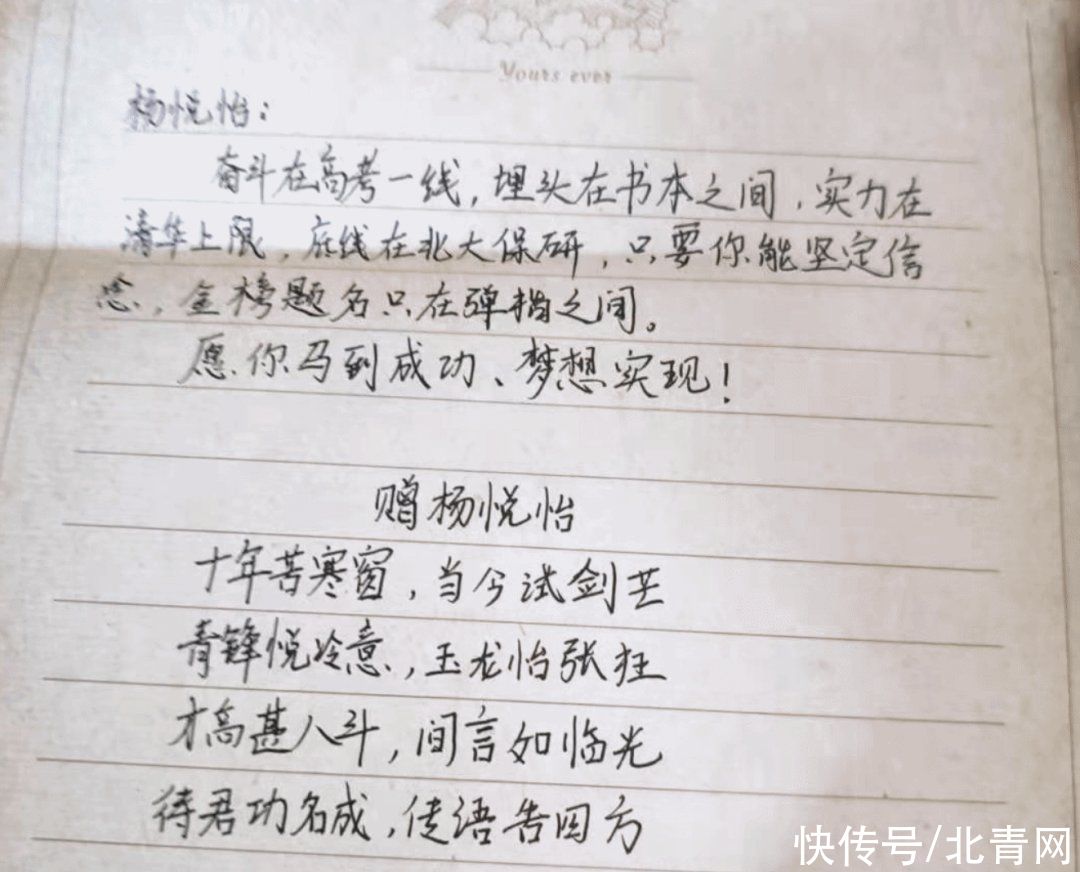 Yours ever
杨悦怡：
奋斗在高考一线，埋头在书本之间，实力在
清华上限，底线在北大保研，只要你能坚定信
念，金榜题名只在弹指之间。
愿你马到成功、梦想实现！
赠杨悦怡
十年苦寒窗，当今试剑芒
青锋悦冷意，玉龙怡张狂
才高甚八斗，间言如临光
待君功名成，传语告四方
快传号/北青网